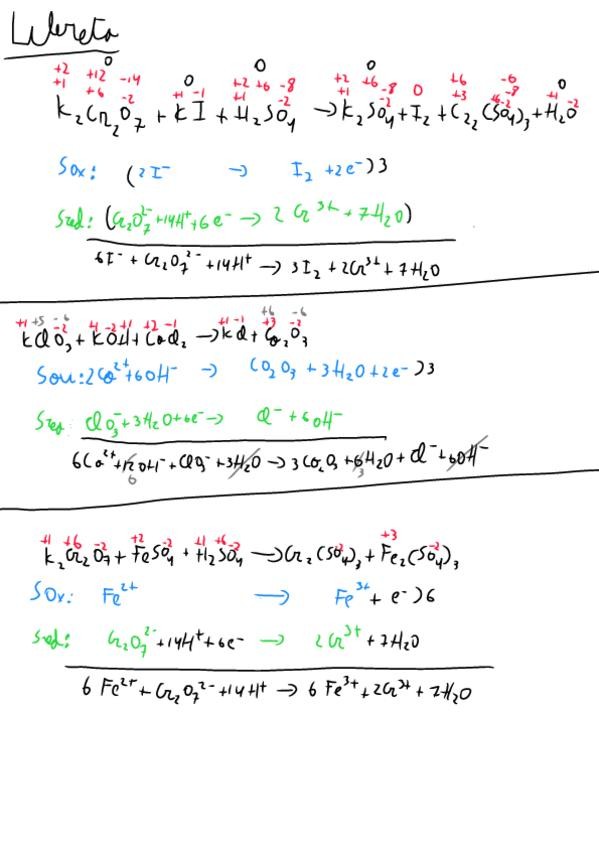 Libreta
0 0 0 0 0
+2 +12 -14 +2 +6 -8 +2 +6 -8 0 +6 -6 -8
+1 +6 -2 +1 -1 +1 -2 +1 -2 +3 +6 -2 +1 -2
K₂Cr₂O₇ + KI + H₂SO₄ → K₂SO₄ + I₂ + Cr₂(SO₄)₃ + H₂O
Sox: (2I⁻ → I₂ + 2e⁻)3
Sred: (Cr₂O₇²⁻ + 14H⁺ + 6e⁻ → 2Cr³⁺ + 7H₂O)
6I⁻ + Cr₂O₇²⁻ + 14H⁺ → 3I₂ + 2Cr³⁺ + 7H₂O
+6 -6
+1 +5 -6 -2 +1 -2 +1 +2 -1 +1 -1 +3 -2
KClO₃ + KOH + CoCl₂ → KCl + Co₂O₃
Sox: 2Co²⁺ + 6OH⁻ → Co₂O₃ + 3H₂O + 2e⁻)3
Sred: ClO₃⁻ + 3H₂O + 6e⁻ → Cl⁻ + 6OH⁻
6Co²⁺ + 12OH⁻ + ClO₃⁻ + 3H₂O → 3Co₂O₃ + 6H₂O + Cl⁻ + 6OH⁻
6 3
+1 +6 -2 +2 -2 +1 +6 -2 -2 +3 -2
K₂Cr₂O₇ + FeSO₄ + H₂SO₄ → Cr₂(SO₄)₃ + Fe₂(SO₄)₃
SOx: Fe²⁺ → Fe³⁺ + e⁻)6
Sred: Cr₂O₇²⁻ + 14H⁺ + 6e⁻ → 2Cr³⁺ + 7H₂O
6Fe²⁺ + Cr₂O₇²⁻ + 14H⁺ → 6Fe³⁺ + 2Cr³⁺ + 7H₂O